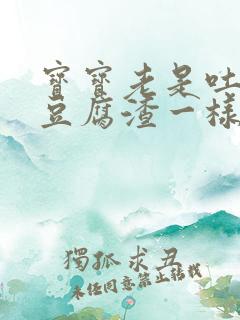 寶寶老是吐
豆腐渣一樣
獨孤求丑
未任同意禁止轉載